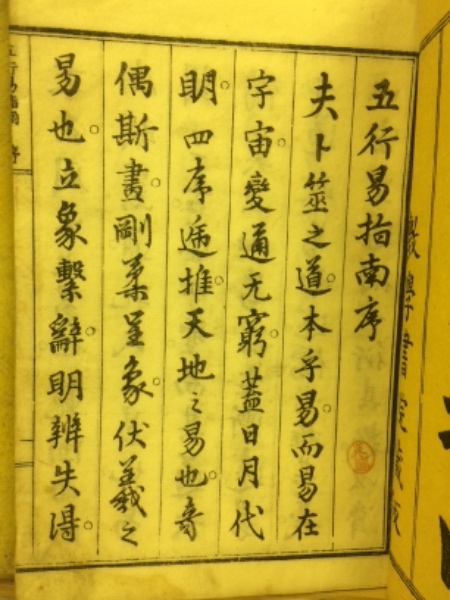 五行易指南序
夫卜筮之道。本乎易。而易在
宇宙。變通无窮。蓋日月代
明。四序遞推。天地之易也。奇
偶斯畫。剛柔呈象。伏羲之
易也。立象繫辭。明辨失得。